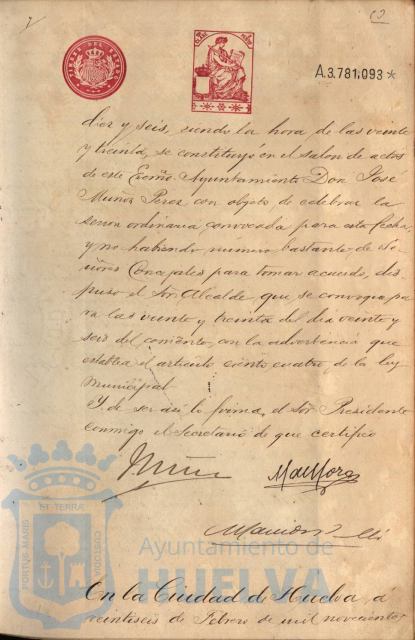 TIMBRE DEL ESTADO
A.3.781,093 *
diez y seis, siendo la hora de las veinte
y treinta, se constituyó en el salon de actos
de este Excmo. Ayuntamiento Don José
Muñoz Perez con objeto de celebrar la
sesion ordinaria convocada para esta fecha,
y no habiendo numero bastante de Se-
ñores Concejales para tomar acuerdo, dis-
puso el Sor. Alcalde que se convoque pa
ra las veinte y treinta del dia veinte y
seis del corriente, con la advertencia que
establece el articulo ciento cuatro de la ley
Municipal
Y de ser asi lo firma, el Sor. Presidente
conmigo el Secretario de que certifico
PORTUS MARIS ET TERRAE CUSTODIA
Ayuntamiento de
HUELVA
En la Ciudad de Huelva a
veintiseis de Febrero de mil novecientos